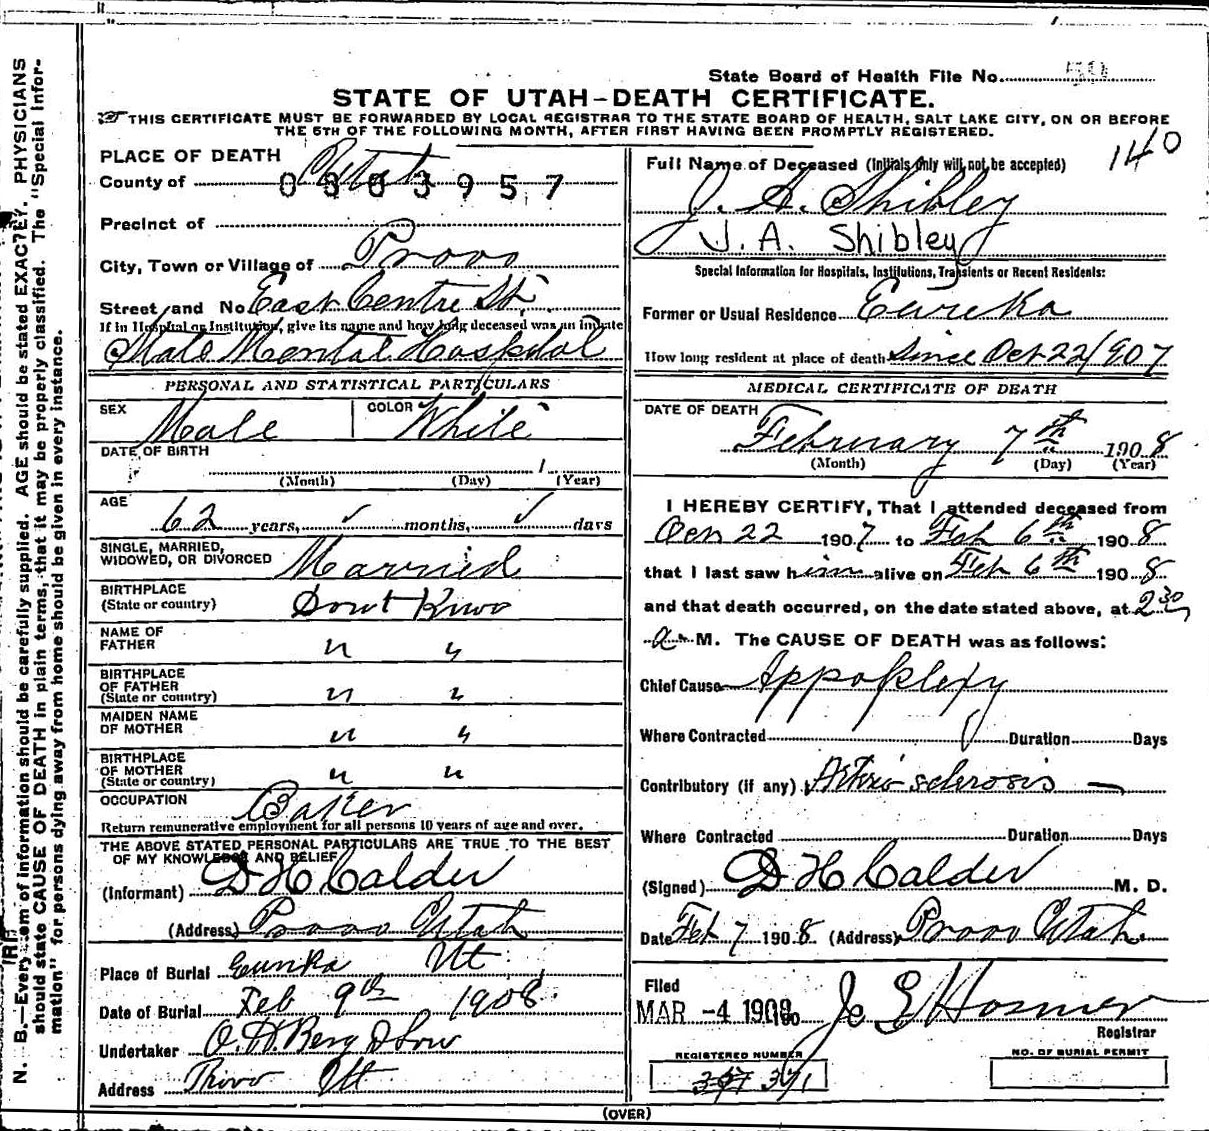 State Board of Health File No. 50
STATE OF UTAH-DEATH CERTIFICATE.
THIS CERTIFICATE MUST BE FORWARDED BY LOCAL REGISTRAR TO THE STATE BOARD OF HEALTH, SALT LAKE CITY, ON OR BEFORE
THE 5TH OF THE FOLLOWING MONTH, AFTER FIRST HAVING BEEN PROMPTLY REGISTERED.
140
PLACE OF DEATH
County of Utah
0303957
Precinct of
City, Town or Village of Provo
Street and No. East Centre St.
If in Hospital or Institution, give its name and how long deceased was an inmate
State Mental Hospital
PERSONAL AND STATISTICAL PARTICULARS
SEX Male COLOR White
DATE OF BIRTH
(Month) (Day) 1 (Year)
AGE 62 years, ✓ months, ✓ days
SINGLE, MARRIED,
WIDOWED, OR DIVORCED Married
BIRTHPLACE
(State or country) Dont Know
NAME OF
FATHER " "
BIRTHPLACE
OF FATHER
(State or country) " "
MAIDEN NAME
OF MOTHER " "
BIRTHPLACE
OF MOTHER
(State or country) " "
OCCUPATION Baker
Return remunerative employment for all persons 10 years of age and over.
THE ABOVE STATED PERSONAL PARTICULARS ARE TRUE TO THE BEST
OF MY KNOWLEDGE AND BELIEF
(Informant) D H Calder
(Address) Provo Utah
Place of Burial Eureka Ut
Date of Burial Feb 9th 1908.
Undertaker O. H. Berg & Son
Address Provo Ut
Full Name of Deceased (Initials only will not be accepted)
J. A. Shibley
J. A. Shibley
Special Information for Hospitals, Institutions, Transients or Recent Residents:
Former or Usual Residence Eureka
How long resident at place of death Since Oct 22/907
MEDICAL CERTIFICATE OF DEATH
DATE OF DEATH
February 7th 1908
(Month) (Day) (Year)
I HEREBY CERTIFY, That I attended deceased from
22 1907 to Feb 6th 1908
that I last saw him alive on Feb 6th 1908
and that death occurred, on the date stated above, at 2 30
a M. The CAUSE OF DEATH was as follows:
Chief Cause Appoplexy
Where Contracted Duration Days
Contributory (if any) Arterio sclerosis —
Where Contracted Duration Days
(Signed) D H Calder M. D.
Date Feb 7 1908. (Address) Provo Utah.
Filed
MAR -4 1908 J. E. Hosmer
Registrar
REGISTERED NUMBER
371
NO. OF BURIAL PERMIT
(OVER)
N. B.—Every item of information should be carefully supplied. AGE should be stated EXACTLY. PHYSICIANS
should state CAUSE OF DEATH in plain terms, that it may be properly classified. The "Special Infor-
mation" for persons dying away from home should be given in every instance.